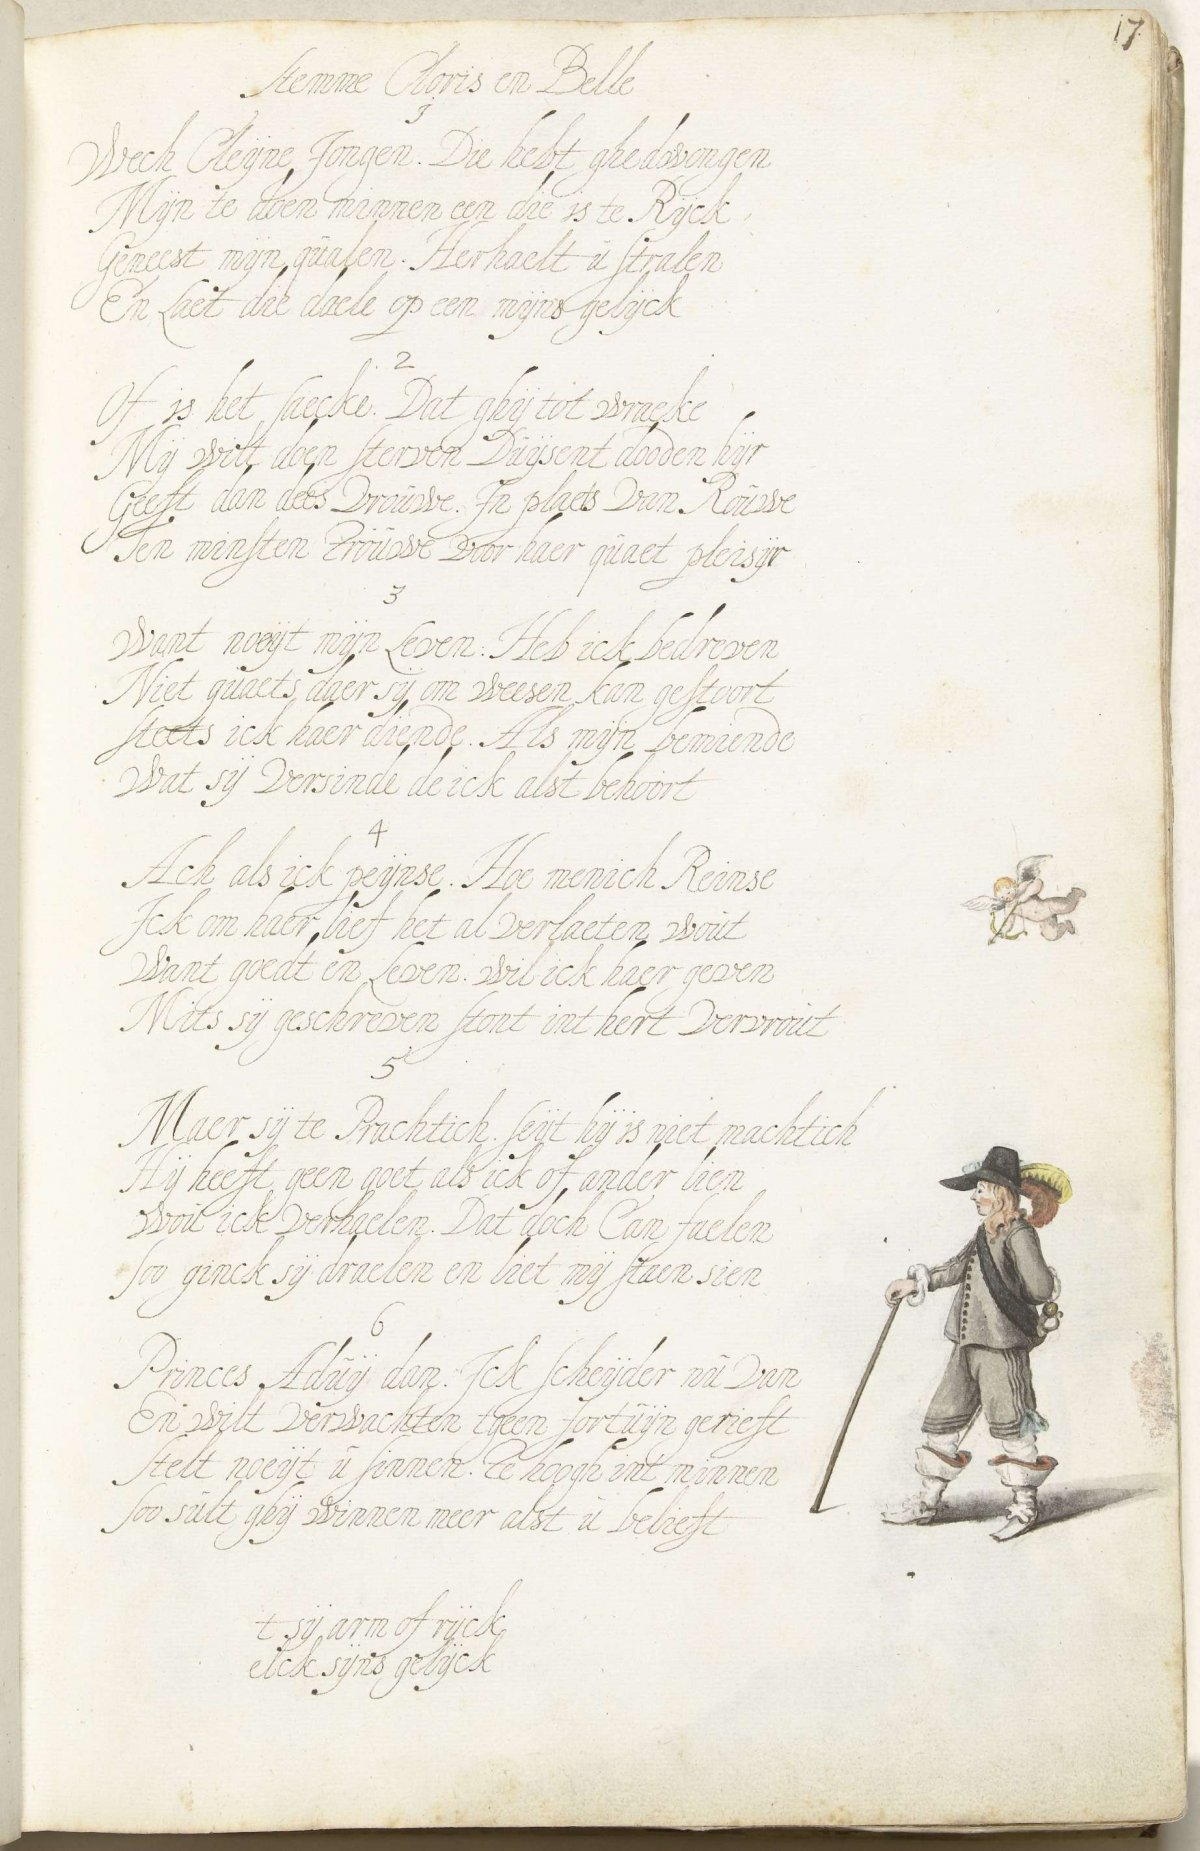 17
Stemme Cloris en Belle
1
Wech Cleyne Jongen. Die hebt ghedwongen
Mijn te doen minnen een die is te Rijck
Geneest mijn qualen. Herhaelt ü stralen
En Laet die daele op een mijns gelijck
2
Of is het saecke. Dat ghij tot wraeke
Mij wilt doen sterven Duijsent dooden hijr
Geeft dan dees Vroüwe. In plaets Van Roüwe
Ten minsten Troüwe Voor haer quaet pleisijr
3
Want noeijt mijn Leven. Heb ick bedreven
Niet quaets daer sij om weesen kan gestoort
Steets ick haer diende. Als mijn beminde
Wat sij Versinde de ick alst behoort
4
Ach als ick peijnse. Hoe menich Reinse
Ick om haer lief het al verlaeten woüt
Want goedt en Leven. wil ick haer geven
Mits sij geschreven stont int hert Vervroüt
5
Maer sij te Prachtich. seijt hij is niet machtich
Hij heeft geen goet als ick of ander lien
Woü ick Verhaelen. Dat doch Can faelen
soo ginck sij draelen en liet mij staen sien
6
Princes Adüij dan. Ick scheijder nü Van
En wilt Verwachten tgeen fortüijn gerieft
Stelt noeijt ü sinnen. Te hoogh int minnen
soo sült ghij winnen meer alst ü belieft
t sij arm of rijck
elck sijns gelijck